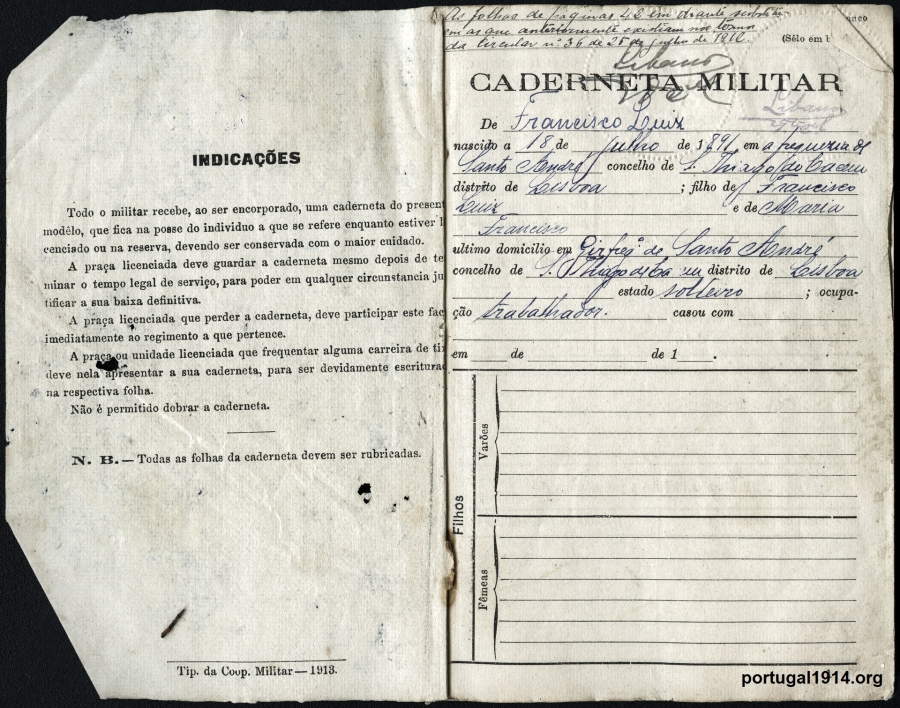 INDICAÇÕES
Todo o militar recebe, ao ser encorporado, uma caderneta do present
modêlo, que fica na posse do individuo a que se refere enquanto estiver l
cenciado ou na reserva, devendo ser conservada com o maior cuidado.
A praça licenciada deve guardar a caderneta mesmo depois de te
minar o tempo legal de serviço, para poder em qualquer circunstancia ju
tificar a sua baixa definitiva.
A praça licenciada que perder a caderneta, deve participar este fac
imediatamente ao regimento a que pertence.
A praça ou unidade licenciada que frequentar alguma carreira de ti
deve nela apresentar a sua caderneta, para ser devidamente escritura
na respectiva folha.
Não é permitido dobrar a caderneta.
N. B. — Todas as folhas da caderneta devem ser rubricadas.
Tip. da Coop. Militar — 1913.
As folhas de paginas 42 em deante
em as que anteriormente existiam nos
da circular nº 36 de 25 de julho de
(Sêlo em b
Libano
CADERNETA MILITAR
Libano
De Francisco Luiz
nascido a 18 de julho de 1891, em a freguezia de
Santo André concelho de S. Thiago do Cacem
distrito de Lisboa ; filho de Francisco
Luiz e de Maria
Francisco
ultimo domicilio em freg. de Santo André
concelho de S. Thiago de distrito de Lisboa
estado solteiro ; ocupa-
ção trabalhador. casou com
em de de 1 .
Filhos
Varões
Fêmeas
portugal1914.org